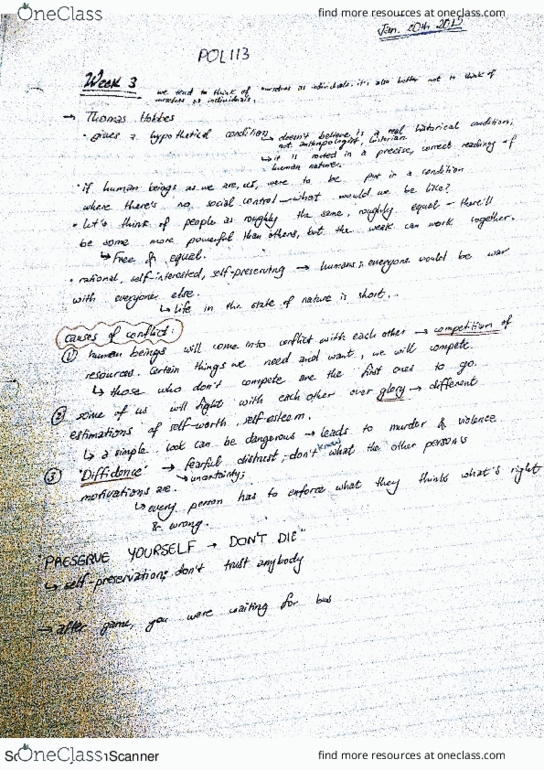 OneClass
find more resources at oneclass.com
Jan. 20th. 2012
POL113
Week 3
we tend to think of ourselves as individuals. it's also better not to think of
ourselves as individuals.
→ Thomas Hobbes
• gives a hypothetical condition ↳ doesn't believe is a real historical condition;
not anthropologist, historian
↳ it is rooted in a precise, correct reading of
human nature.
• if human beings as we are, us, were to be put in a condition
where there's no social control - what would we be like?
• let's think of people as roughly the same, roughly equal - there'll
be some more powerful than others, but the weak can work together.
↳ Free & equal.
• rational, self-interested, self-preserving → humans: everyone would be war
with everyone else.
↳ life in the state of nature is short...
causes of conflict:
① human beings will come into conflict with each other → competition of
resources. Certain things we need and want, we will compete.
↳ those who don't compete are the first ones to go.
② some of us will fight with each other over glory → different
estimations of self-worth, self-esteem.
↳ a simple look can be dangerous → leads to murder & violence
③ "Diffidence" → fearful distrust; don't know what the other person's
motivations are. ↳ uncertainty;
↳ every person has to enforce what they thinks what's right
& wrong.
"PRESERVE YOURSELF → DON'T DIE"
↳ self-preservation; don't trust anybody
→ after game, you were waiting for bus
OneClass
Scanner
find more resources at oneclass.com